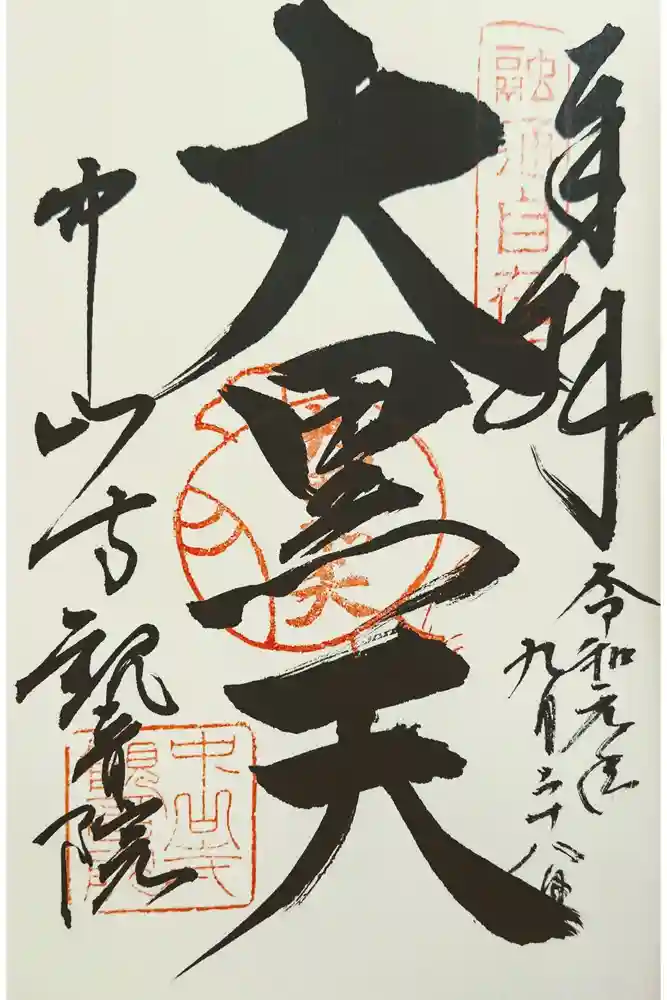 奉拝
令和元年
九月二十八日
融通自在
大黒天
中山寺
観音院
中山寺